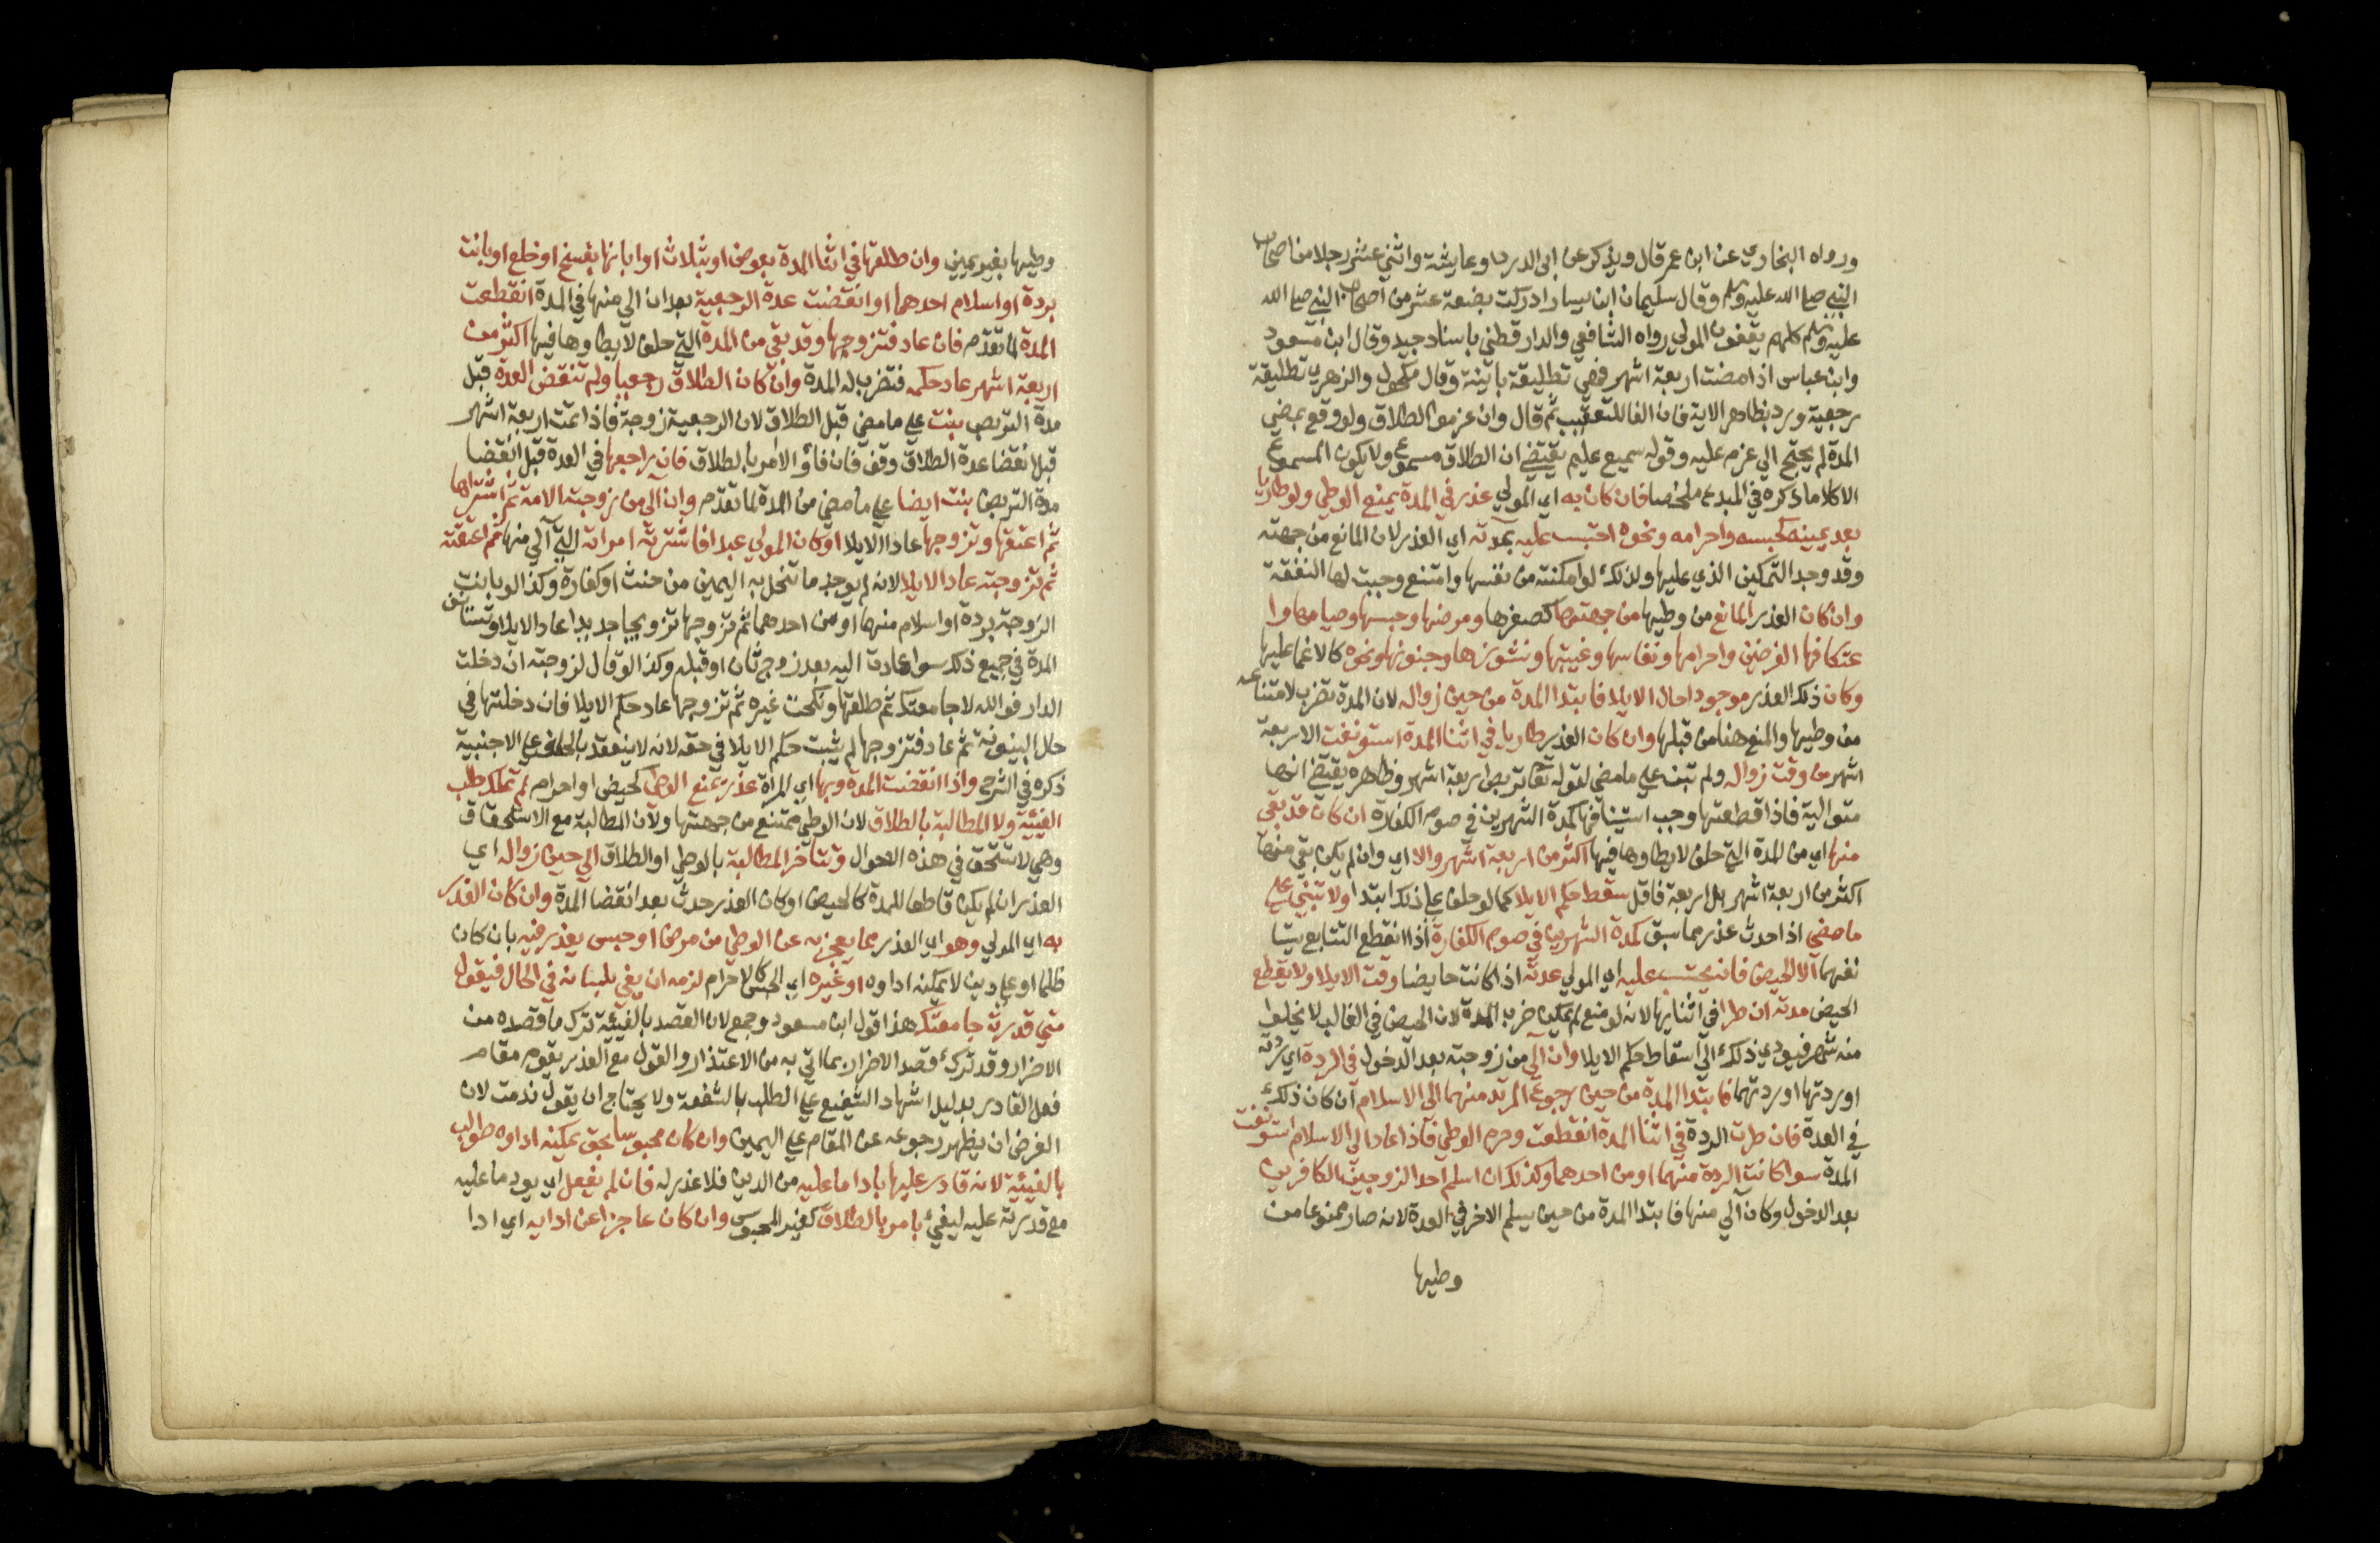 ورواه البخاري عن ابن عمر قال ويذكر عن ابي الدردا وعايشة واثني عشر رجلا من اصحاب
النبي صلى الله عليه وسلم وقال سليمان ابن يسار ادركت بضعة عشر من اصحاب النبي صلى الله
عليه وسلم كلهم يقفون المولي رواه الشافعي والدارقطني باسناد جيد وقال ابن مسعود
وابن عباس اذا مضت اربعة اشهر فهي تطليقة باينة وقال مكحول والزهري تطليقة
رجعية ويرد بظاهر الاية فان الفا للتعقيب ثم قال وان عزموا الطلاق ولو وقع بمضي
المدة لم يحتج الى عزم عليه وقوله سميع عليم يقتضي ان الطلاق مسموع ولا يكون المسموع
الا كلاما ذكره في المبدع ملخصا فان كان به اي المولي عذر في المدة يمنع الوطي ولو طاريا
بعد يمينه كحبسه واحرامه ونحوه احتسب عليه بمدته اي العذر لان المانع من جهته
وقد وجد التمكين الذي عليها ولذلك لو امكنته من نفسها وامتنع وجبت لها النفقة
وان كان العذر المانع من وطيها من جهتها كصغرها ومرضها وحبسها وصيامها وا
عتكافها الفرضين واحرامها ونفاسها وغيبتها ونشوزها وجنونها ونحوه كالاغما عليها
وكان ذلك العذر موجودا حال الايلا فابتدا المدة من حين زواله لان المدة تضرب لامتناعه
من وطيها والمنع هنا من قبلها وان كان العذر طاريا في اثنا المدة استونفت الاربعة
اشهر من وقت زواله ولم تبن على ما مضى لقوله تعالى تربص اربعة اشهر وظاهره يقتضي انها
متوالية فاذا قطعتها وجب استينافها كمدة الشهرين في صوم الكفارة ان كان قد بقي
منها اي من المدة التي حلف لا يطاوها فيها اكثر من اربعة اشهر والا اي وان لم يكن بقي منها
اكثر من اربعة اشهر بل اربعة فاقل سقط حكم الايلا كما لو حلف على ذلك ابتدا ولا تبني على
ما مضى اذا حدث عذر مما سبق كمدة الشهرين في صوم الكفارة اذا انقطع التتابع يستا
نفهما الا الحيض فانه يحتسب عليه اي المولي عدته اذا كانت حايضا وقت الايلا ولا يقطع
الحيض مدته ان طرا في اثنايها لانه لو منع لم يمكن ضرب المدة لان الحيض في الغالب لا يخلوا
منه شهر فيودي ذلك الى اسقاط حكم الايلا وان آلى من زوجته بعد الدخول في الردة اي ردته
او ردتها او ردتهما فابتدا المدة من حين رجوع المرتد منهما الى الاسلام ان كان ذلك
في العدة فان طرت الردة في اثنا المدة انقطعت وحرم الوطي فاذا عادا الى الاسلام استونفت
المدة سوا كانت الردة منهما او من احدهما وكذلك ان اسلم احد الزوجين الكافرين
بعد الدخول وكان آلى منها فابتدا المدة من حين يسلم الاخر في العدة لانه صار ممنوعا من
وطيها
وطيها بغير يمين وان طلقها في اثنا المدة بعوض او بثلاث او ابانها بفسخ او خلع او بانت
بردة او اسلام احدهما او انقضت عدة الرجعية بعد ان الى منها في المدة انقطعت
المدة لما تقدم فان عاد فتزوجها وقد بقي من المدة التي حلف لا يطاوها فيها اكثر من
اربعة اشهر عاد حكمه فتضرب له المدة وان كان الطلاق رجعيا ولم تنقض العدة قبل
مدة التربص بنت على ما مضى قبل الطلاق لان الرجعية زوجة فاذا تمت اربعة اشهر
قبل انقضا عدة الطلاق وقف فان فا والا امر بالطلاق فان راجعها في العدة قبل انقضا
مدة التربص بنت ايضا على ما مضى من المدة لما تقدم وان آلى من زوجته الامة ثم اشتراها
ثم اعتقها وتزوجها عاد الايلا او كان المولي عبدا فاشترته امراته التي آلى منها ثم اعتقته
ثم تزوجته عاد الايلا لانه لم يوجد ما تنحل به اليمين من حنث او كفارة وكذا لو بانت
الزوجة بردة او اسلام منهما او من احدهما ثم تزوجها تزويجا جديدا عاد الايلا وتستانف
المدة في جميع ذلك سوا عادت اليه بعد زوج ثان او قبله وكذا لو قال لزوجته ان دخلت
الدار فوالله لا جامعتك ثم طلقها ونكحت غيره ثم تزوجها عاد حكم الايلا فان دخلتها في
حال البينونة ثم عاد فتزوجها لم يثبت حكم الايلا في حقه لانه لا ينعقد بالحلف على الاجنبية
ذكره في الشرح واذا انقضت المدة وبها اي المراة عذر يمنع الوطي كحيض او احرام لم تملك طلب
الفيئة ولا المطالبة بالطلاق لان الوطي ممتنع من جهتها ولان المطالبة مع الاستحقاق
وهي لا تستحق في هذه الاحوال وتتاخر المطالبة بالوطي او الطلاق الى حين زواله اي
العذر ان لم يكن قاطعا للمدة كالحيض او كان العذر حدث بعد انقضا المدة وان كان العذر
به اي المولي وهو اي العذر مما يعجز به عن الوطي من مرض او حبس يعذر فيه بان كان
ظلما او على دين لا يمكنه اداوه او غيره اي الحبس كالاحرام لزمه ان يفي بلسانه في الحال فيقول
متى قدرت جامعتك هذا قول ابن مسعود وجمع لان القصد بالفيئة ترك ما قصده من
الاضرار وقد ترك قصد الاضرار بما اتى به من الاعتذار والقول مع العذر يقوم مقام
فعل القادر بدليل اشهاد الشفيع على الطلب بالشفعة ولا يحتاج ان يقول ندمت لان
الغرض ان يظهر رجوعه عن المقام على اليمين وان كان محبوسا بحق يمكنه اداوه طولب
بالفيئة لانه قادر عليها بادا ما عليه من الدين فلا عذر له فان لم يفعل اي يود ما عليه
مع قدرته عليه ليفي يامر بالطلاق كغير المحبوس وان كان عاجزا عن ادايه اي ادا